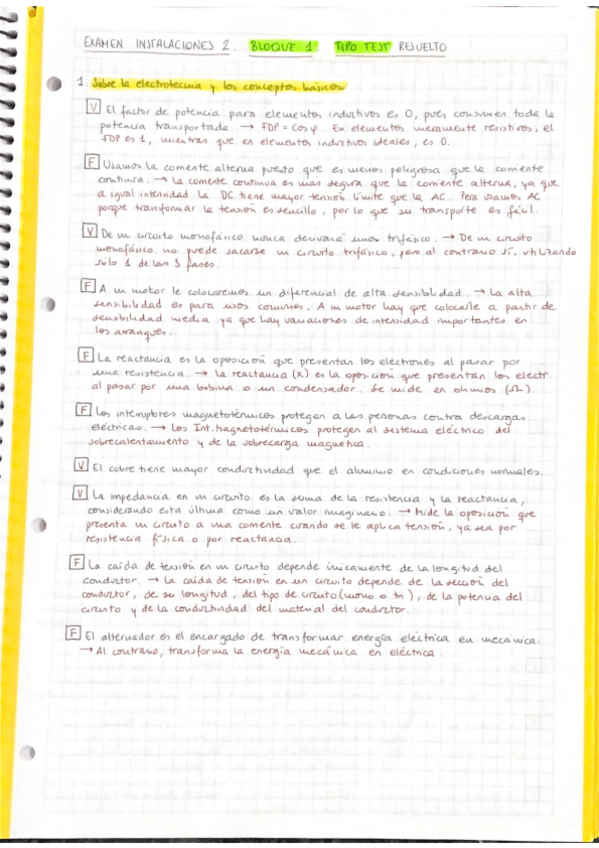 EXAMEN INSTALACIONES 2. BLOQUE 1. TIPO TEST RESUELTO
1. Sobre la electrotecnia y los conceptos básicos
V El factor de potencia para elementos inductivos es 0, pues consumen toda la
potencia transportada. → FDP = Cos φ. En elementos meramente resistivos, el
FDP es 1, mientras que en elementos inductivos ideales, es 0.
F Usamos la corriente alterna puesto que es menos peligrosa que la corriente
continua. → La corriente continua es más segura que la corriente alterna, ya que
a igual intensidad la DC tiene mayor tensión límite que la AC. Pero usamos AC
porque transformar la tensión es sencillo, por lo que su transporte es fácil.
V De un circuito monofásico nunca derivará unos trifásico. → De un circuito
monofásico no puede sacarse un circuito trifásico, pero al contrario sí, utilizando
sólo 1 de las 3 fases.
F A un motor le colocaremos un diferencial de alta sensibilidad. → La alta
sensibilidad es para usos comunes. A un motor hay que colocarle a partir de
sensibilidad media ya que hay variaciones de intensidad importantes en
los arranques.
F La reactancia es la oposición que presentan los electrones al pasar por
una resistencia. → La reactancia (X) es la oposición que presentan los electr.
al pasar por una bobina o un condensador. Se mide en ohmios (Ω).
F Los interruptores magnetotérmicos protegen a las personas contra descargas
eléctricas. → Los Int. Magnetotérmicos protegen al sistema eléctrico del
sobrecalentamiento y de la sobrecarga magnética.
V El cobre tiene mayor conductividad que el aluminio en condiciones normales.
V La impedancia en un circuito es la suma de la resistencia y la reactancia,
considerando esta última como un valor imaginario. → Mide la oposición que
presenta un circuito a una corriente cuando se le aplica tensión, ya sea por
resistencia física o por reactancia.
F La caída de tensión en un circuito depende únicamente de la longitud del
conductor. → La caída de tensión en un circuito depende de la sección del
conductor, de su longitud, del tipo de circuito (mono o tri), de la potencia del
circuito y de la conductividad del material del conductor.
F El alternador es el encargado de transformar energía eléctrica en mecánica.
→ Al contrario, transforma la energía mecánica en eléctrica.